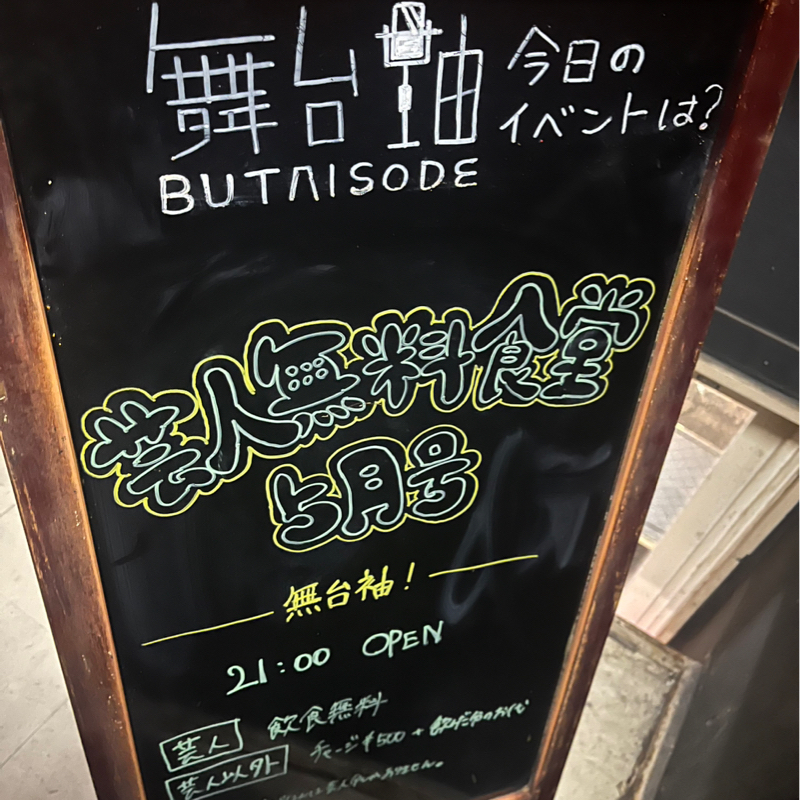 舞台袖
今日の
イベントは?
BUTAISODE
芸人無料食堂
5月号
無台袖!
21:00 OPEN
芸人 飲食無料
芸人以外 チャージ¥500 + 飲んだ分のお代